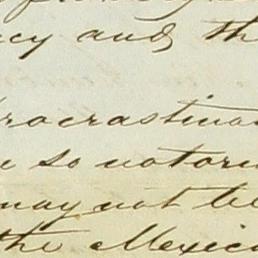 cy and th
rocrastina
so notori
may not be
the Mexica